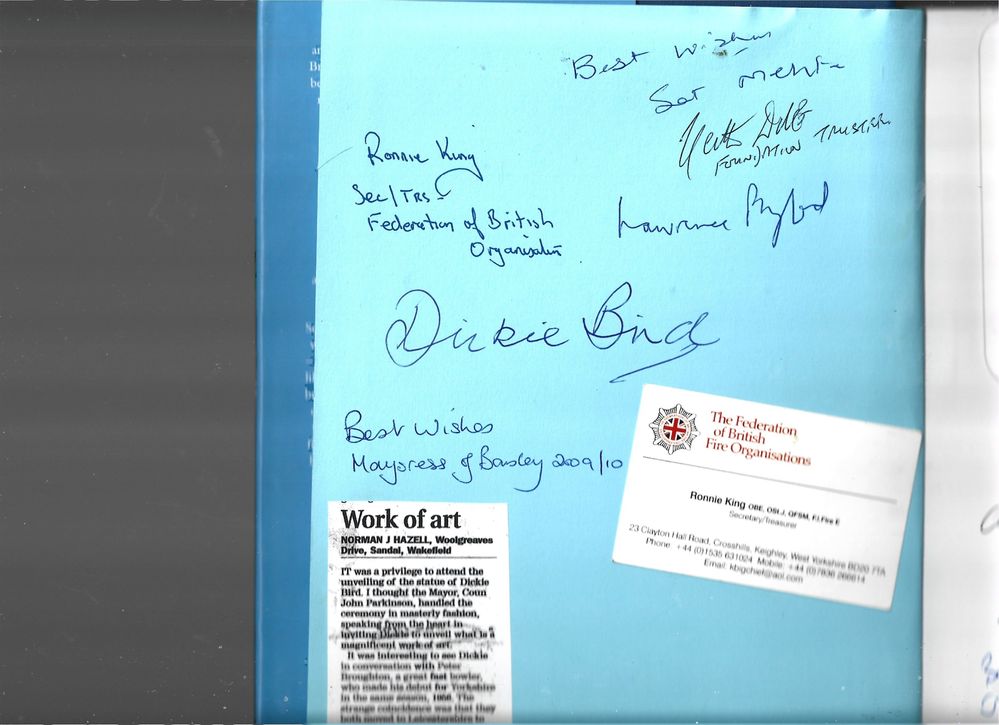 Best Wishes
Ronnie King
Sec/Trs
Federation of British
Organisation
FOUNDATION TRUSTEE
Lawrence
Dickie Bird
Best Wishes
Mayoress of Barnsley 2009/10
The Federation
of British
Fire Organisations
Ronnie King OBE, OStJ, QFSM, FIFire E
Secretary/Treasurer
23 Clayton Hall Road, Crosshills, Keighley, West Yorkshire BD20 7TA
Phone +44 (0)1535 631024 Mobile: +44 (0)7836 266614
Email: kbigchief@aol.com
Work of art
NORMAN J HAZELL, Woolgreaves
Drive, Sandal, Wakefield
IT was a privilege to attend the
unveiling of the statue of Dickie
Bird. I thought the Mayor, Coun
John Parkinson, handled the
ceremony in masterly fashion,
speaking from the heart in
inviting Dickie to unveil what is a
magnificent work of art.
It was interesting to see Dickie
in conversation with Peter
Broughton, a great fast bowler,
who made his debut for Yorkshire
in the same season, 1956. The
strange coincidence was that they
both moved to Leicestershire to